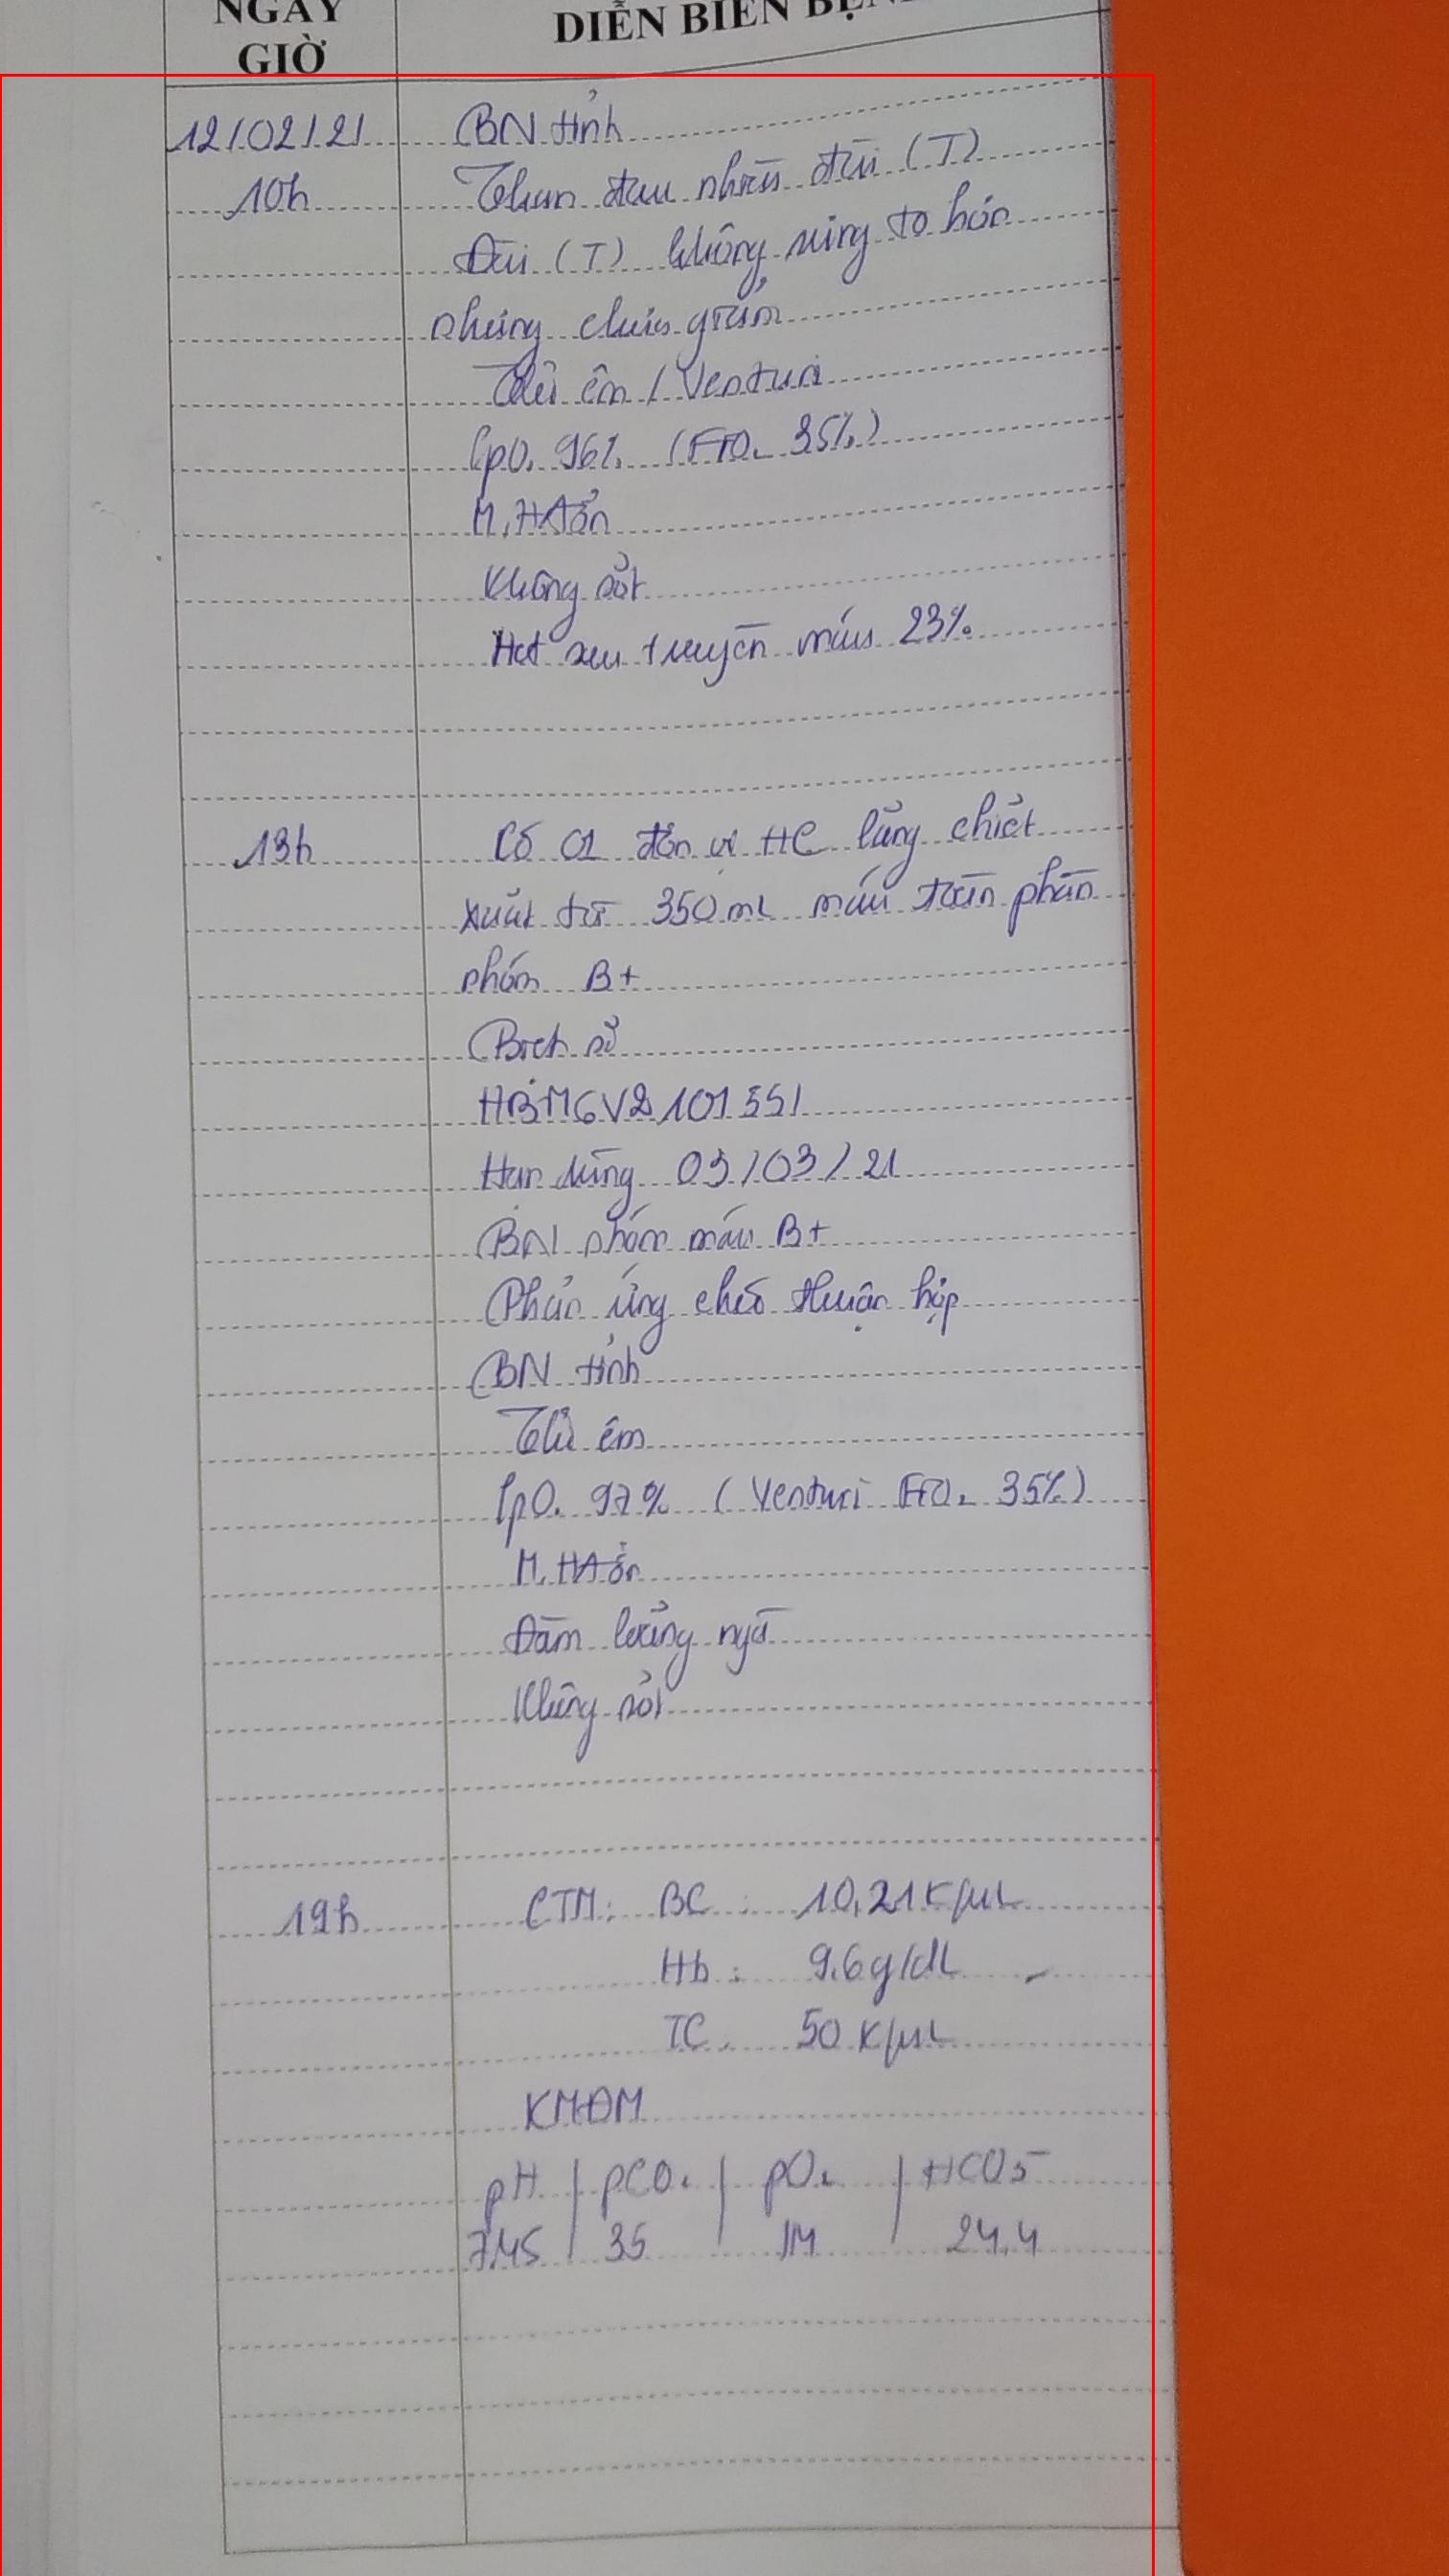 NGÀY
GIỜ
DIỄN BIẾN BỆNH
12/02/21
BN tỉnh
10h
Than đau nhiều đùi (T)
Đùi (T) không sưng to hơn
nhưng chưa giảm
Thở êm / Venturi
SpO₂ 96% (FiO₂ 35%)
M, HA ổn
Không sốt
Hct sau truyền máu 23%
13h
Có 01 đơn vị HC lắng chiết
xuất từ 350 mL máu toàn phần
nhóm B+
Bịch số
HBM6V2101551
Hạn dùng 03/03/21
BN nhóm máu B+
Phản ứng chéo thuận hợp
BN tỉnh
Thở êm
SpO₂ 97% (Venturi FiO₂ 35%)
M, HA ổn
Đàm loãng ngà
Không sốt
19h
CTM: BC : 10,21 K/µL
Hb : 9.6 g/dL
TC : 50 K/µL
KMĐM
pH | pCO₂ | pO₂ | HCO3⁻
7.45 | 35 24.4